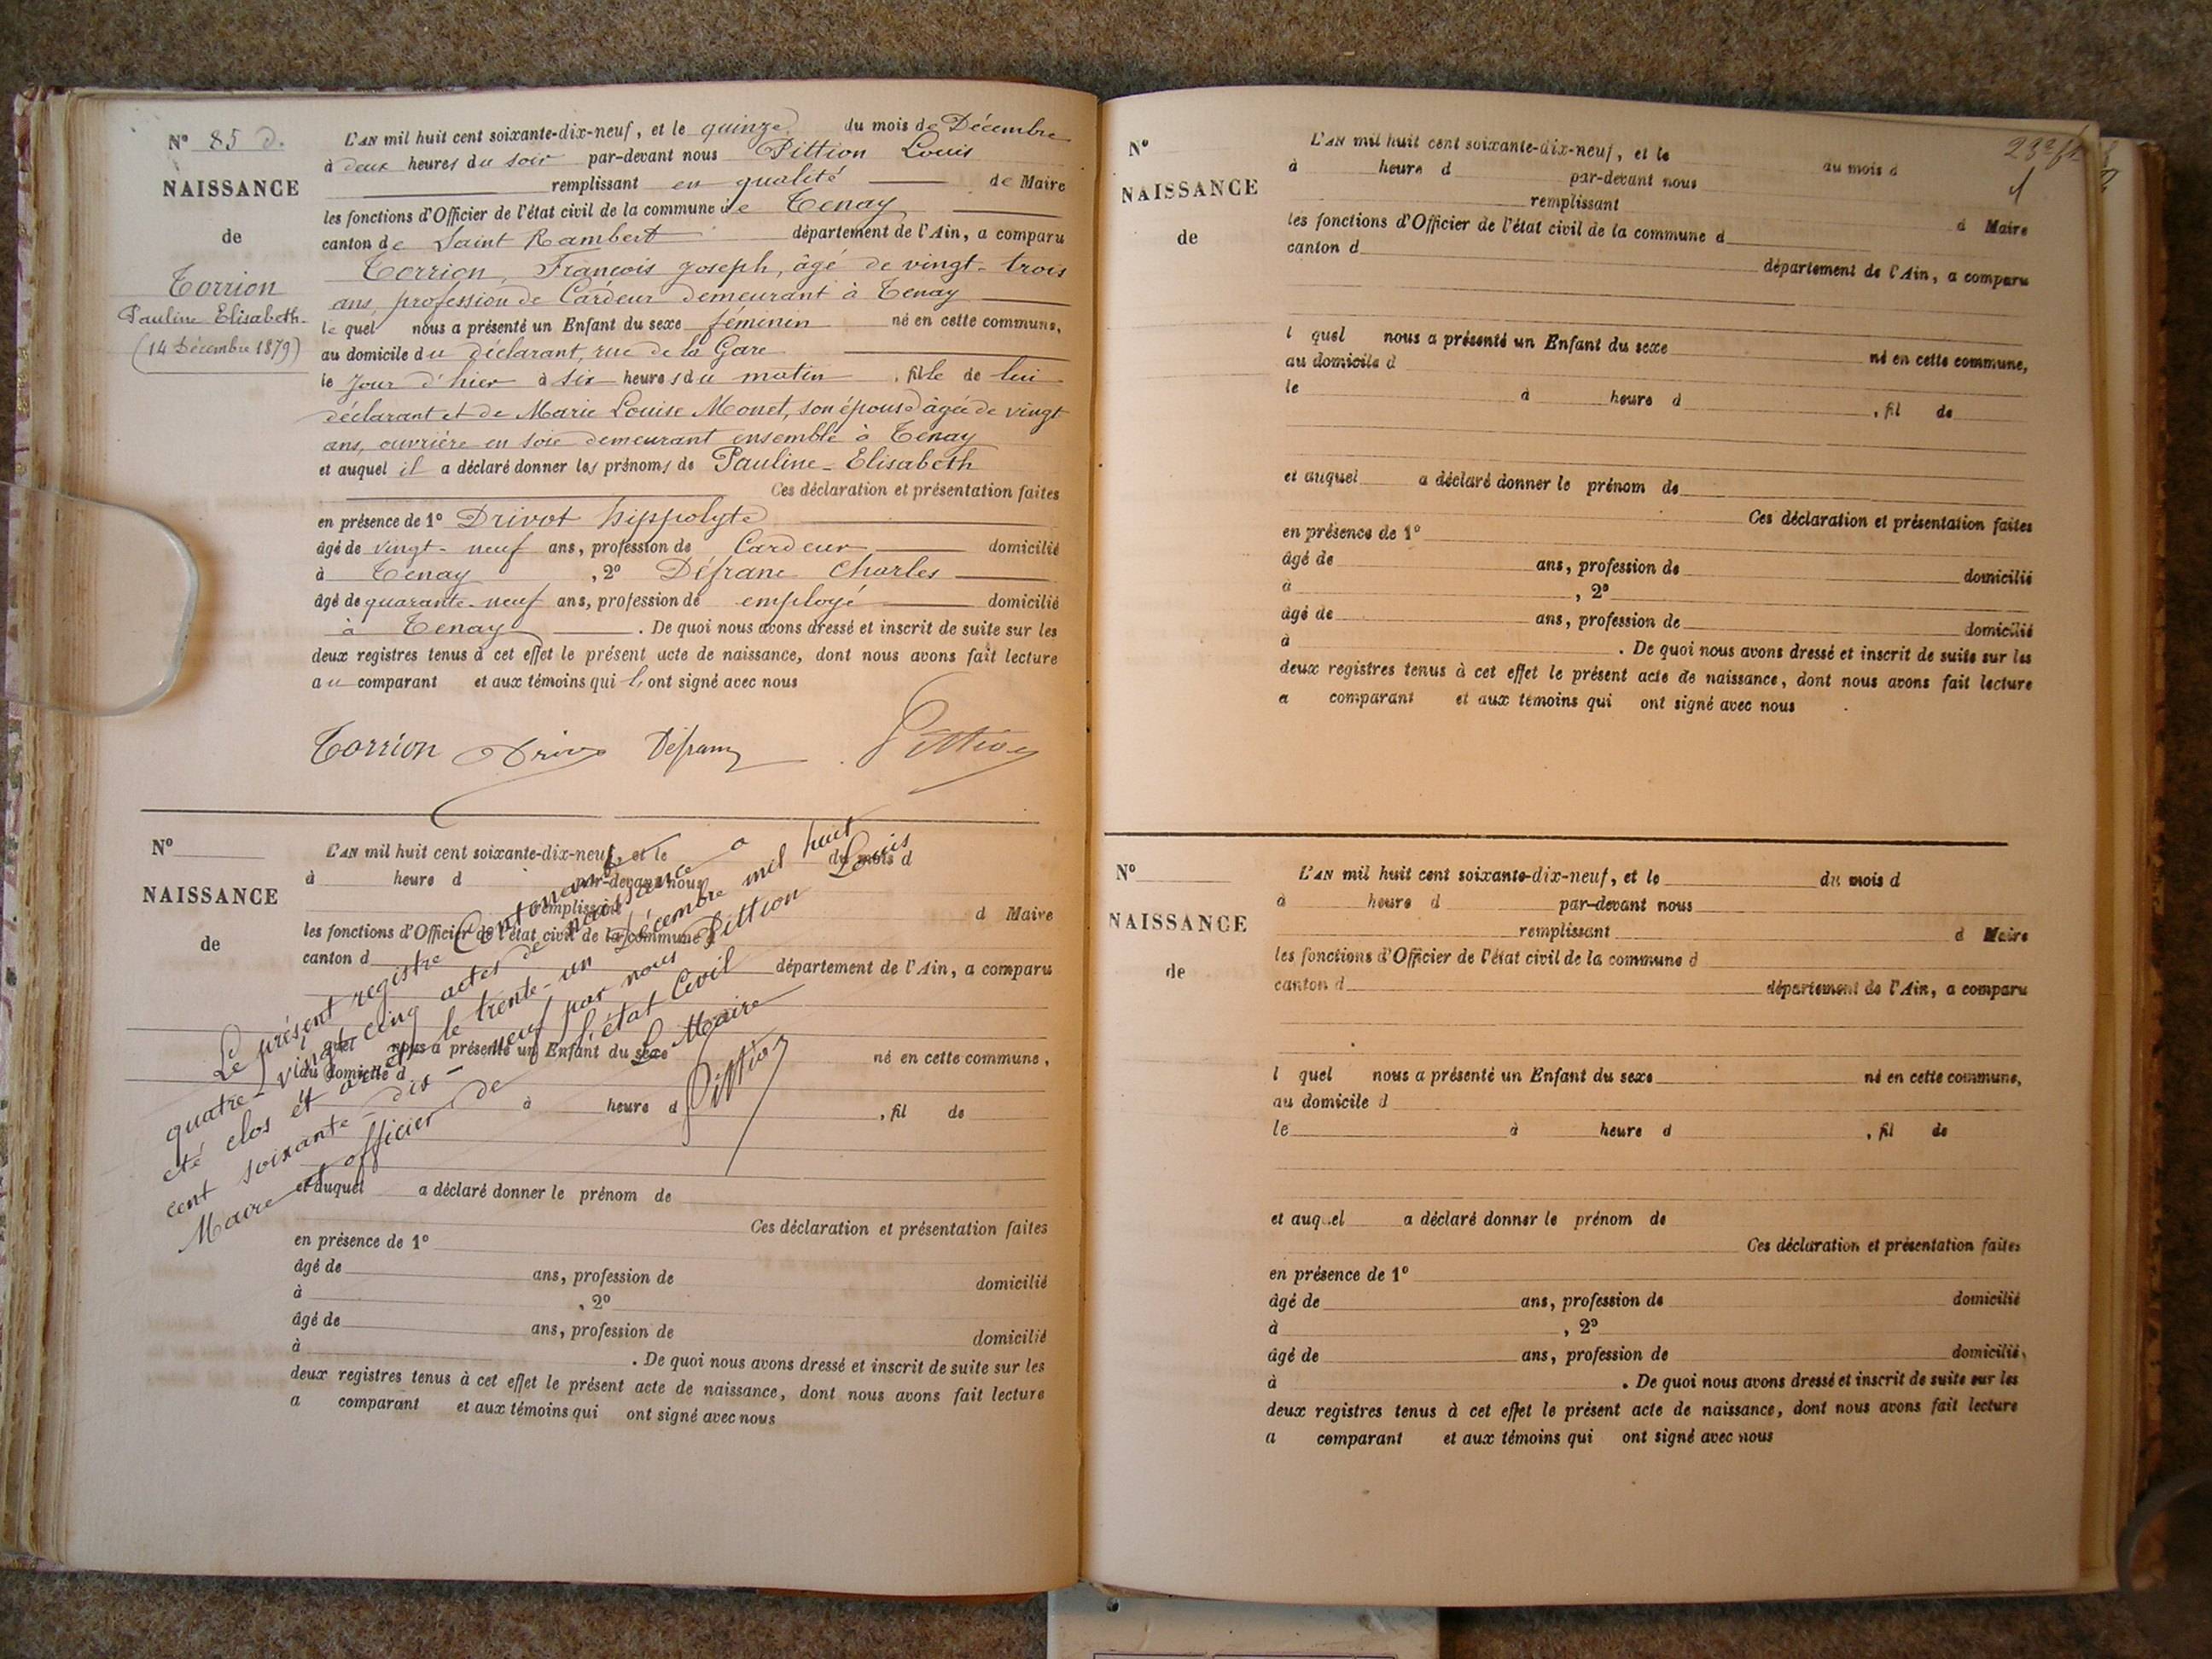 N° 85 D.
NAISSANCE
de
Torrion
Pauline Elisabeth
(14 Décembre 1879)
L'AN mil huit cent soixante-dix-neuf, et le quinze du mois de Décembre
à deux heures du soir par-devant nous Pittion Louis
remplissant en qualité de Maire
les fonctions d'Officier de l'état civil de la commune de Tenay
canton de Saint Rambert département de l'Ain, a comparu
Torrion, François Joseph, âgé de vingt-trois
ans, profession de Cardeur demeurant à Tenay
lequel nous a présenté un Enfant du sexe féminin né en cette commune,
au domicile du déclarant, rue de la Gare
le jour d'hier à six heures du matin, fille de lui
déclarant et de Marie Louise Monet, son épouse âgée de vingt
ans, ouvrière en soie demeurant ensemble à Tenay
et auquel il a déclaré donner les prénoms de Pauline-Elisabeth
Ces déclaration et présentation faites
en présence de 1° Drivot hippolyte
âgé de vingt-neuf ans, profession de Cardeur domicilié
à Tenay, 2° Défranc Charles
âgé de quarante-neuf ans, profession de employé domicilié
à Tenay. De quoi nous avons dressé et inscrit de suite sur les
deux registres tenus à cet effet le présent acte de naissance, dont nous avons fait lecture
au comparant et aux témoins qui l'ont signé avec nous
Torrion Drivo Défranc Pittion
N°
NAISSANCE
de
L'AN mil huit cent soixante-dix-neuf, et le du mois d
à heure d par-devant nous
remplissant d Maire
les fonctions d'Officier de l'état civil de la commune d
canton d département de l'Ain, a comparu
l quel nous a présenté un Enfant du sexe né en cette commune,
au domicile d
à heure d , fil de
et auquel a déclaré donner le prénom de
Ces déclaration et présentation faites
en présence de 1°
âgé de ans, profession de domicilié
à , 2°
âgé de ans, profession de domicilié
à . De quoi nous avons dressé et inscrit de suite sur les
deux registres tenus à cet effet le présent acte de naissance, dont nous avons fait lecture
a comparant et aux témoins qui ont signé avec nous
Le présent registre Contenant
quatre-vingt-cinq actes de naissance a
été clos et arrêté le trente-un Décembre mil huit
cent soixante-dix-neuf par nous Pittion Louis
Maire et officier de l'état Civil
Le Maire
Pittion
N°
NAISSANCE
de
L'AN mil huit cent soixante-dix-neuf, et le du mois d
à heure d par-devant nous
remplissant d Maire
les fonctions d'Officier de l'état civil de la commune d
canton d département de l'Ain, a comparu
l quel nous a présenté un Enfant du sexe né en cette commune,
au domicile d
le à heure d , fil de
et auquel a déclaré donner le prénom de
Ces déclaration et présentation faites
en présence de 1°
âgé de ans, profession de domicilié
à , 2°
âgé de ans, profession de domicilié
à . De quoi nous avons dressé et inscrit de suite sur les
deux registres tenus à cet effet le présent acte de naissance, dont nous avons fait lecture
a comparant et aux témoins qui ont signé avec nous
N°
NAISSANCE
de
L'AN mil huit cent soixante-dix-neuf, et le du mois d
à heure d par-devant nous
remplissant d Maire
les fonctions d'Officier de l'état civil de la commune d
canton d département de l'Ain, a comparu
l quel nous a présenté un Enfant du sexe né en cette commune,
au domicile d
le à heure d , fil de
et auquel a déclaré donner le prénom de
Ces déclaration et présentation faites
en présence de 1°
âgé de ans, profession de domicilié
à , 2°
âgé de ans, profession de domicilié
à . De quoi nous avons dressé et inscrit de suite sur les
deux registres tenus à cet effet le présent acte de naissance, dont nous avons fait lecture
a comparant et aux témoins qui ont signé avec nous